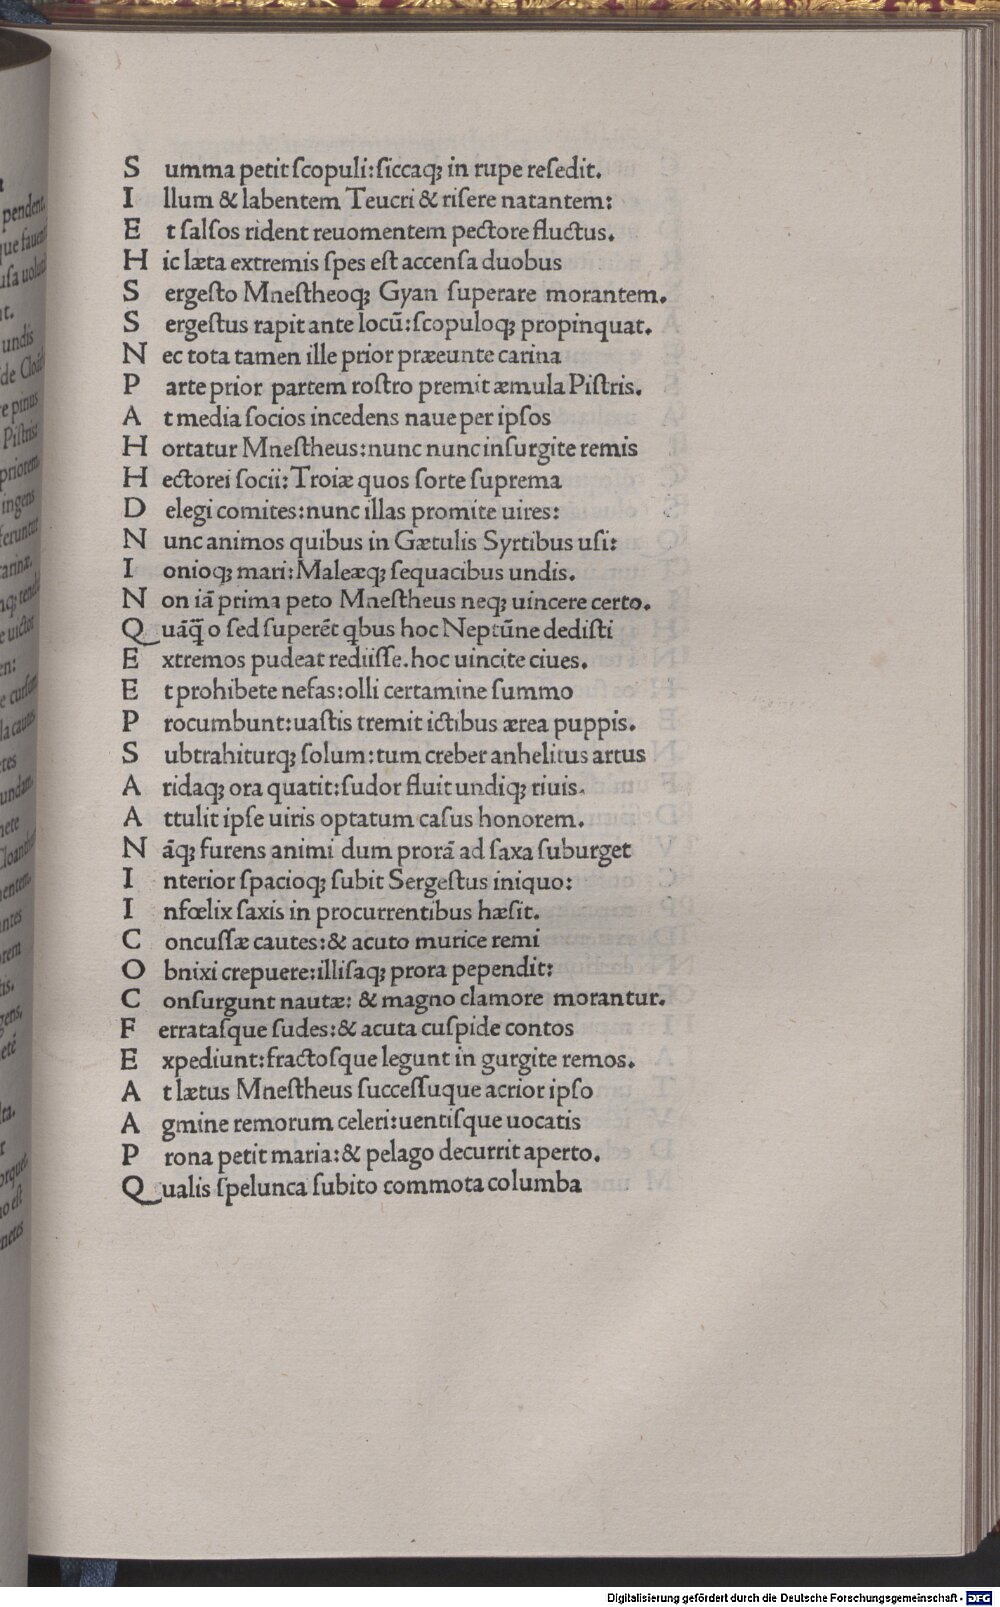 S umma petit ſcopuli: ſiccaqꝫ in rupe reſedit.
I llum & labentem Teucri & riſere natantem:
E t ſalſos rident reuomentem pectore fluctus.
H ic læta extremis ſpes eſt accenſa duobus
S ergeſto Mneſtheoqꝫ Gyan ſuperare morantem.
S ergeſtus rapit ante locū: ſcopuloqꝫ propinquat.
N ec tota tamen ille prior præeunte carina
P arte prior partem roſtro premit æmula Piſtris.
A t media ſocios incedens naue per ipſos
H ortatur Mneſtheus: nunc nunc inſurgite remis
H ectorei ſocii: Troiæ quos ſorte ſuprema
D elegi comites: nunc illas promite uires:
N unc animos quibus in Gætulis Syrtibus uſi:
I onioqꝫ mari: Maleæqꝫ ſequacibus undis.
N on iā prima peto Mneſtheus neqꝫ uincere certo.
Q uāq̄ o ſed ſuperēt qbus hoc Neptūne dediſti
E xtremos pudeat rediiſſe. hoc uincite ciues.
E t prohibete nefas: olli certamine ſummo
P rocumbunt: uaſtis tremit ictibus ærea puppis.
S ubtrahiturqꝫ ſolum: tum creber anhelitus artus
A ridaqꝫ ora quatit: ſudor fluit undiqꝫ riuis.
A ttulit ipſe uiris optatum caſus honorem.
N āqꝫ furens animi dum prorā ad ſaxa ſuburget
I nterior ſpacioqꝫ ſubit Sergeſtus iniquo:
I nfœlix ſaxis in procurrentibus hæſit.
C oncuſſæ cautes: & acuto murice remi
O bnixi crepuere: illiſaqꝫ prora pependit:
C onſurgunt nautæ: & magno clamore morantur.
F erratasque ſudes: & acuta cuſpide contos
E xpediunt: fractoſque legunt in gurgite remos.
A t lætus Mneſtheus ſucceſſuque acrior ipſo
A gmine remorum celeri: uentiſque uocatis
P rona petit maria: & pelago decurrit aperto.
Q ualis ſpelunca ſubito commota columba
Digitalisierung gefördert durch die Deutsche Forschungsgemeinschaft - DFG